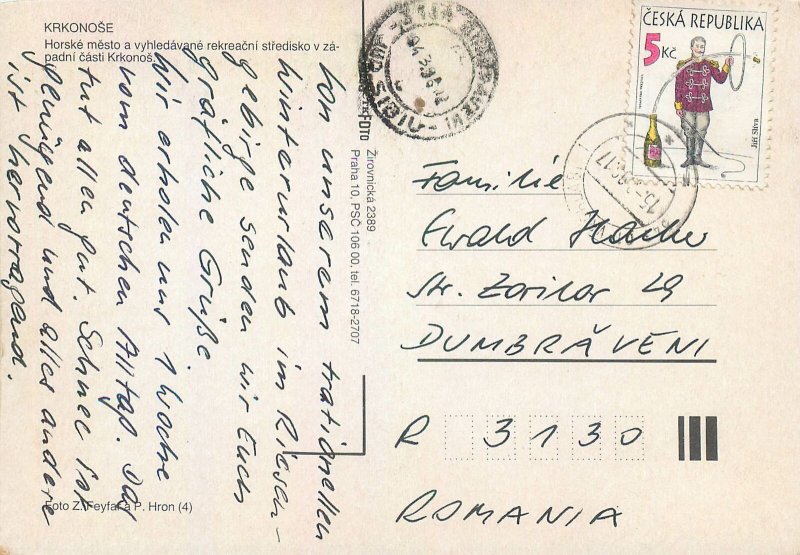 KRKONOŠE
Horské město a vyhledávané rekreační středisko v zá-
padní části Krkonoš.
Von unserem trationellen
Winterurlaub im Riesen-
gebirge senden wir Euch
gräfliche Grüße
Wir erholen uns 1 Woche
vom deutschen Alltag. Das
tut allen gut. Schnee ist
genügend und alles andere
ist hervorragend.
Foto Z. Feyfar a P. Hron (4)
FOTO
Žirovnická 2389
Praha 10, PSČ 106 00, tel. 6718-2707
ČESKÁ REPUBLIKA
5 Kč
Jiří Slíva
Familie
Ewald
Str. Zorilor 29
DUMBRĂVENI
R 3130
ROMANIA